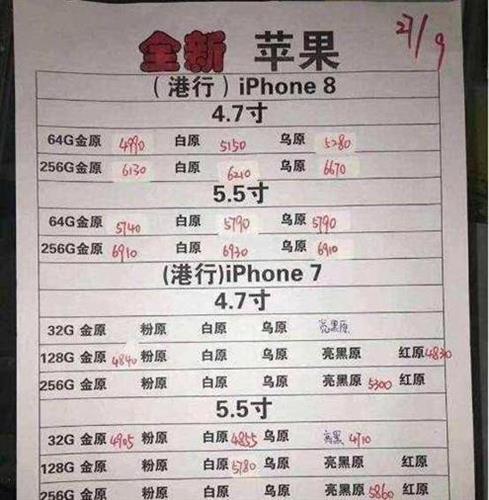 全新 苹果 27/9
（港行）iPhone 8
4.7寸
64G金原 4990 白原 5150 乌原 5280
256G金原 6130 白原 6210 乌原 6670
5.5寸
64G金原 5740 白原 5790 乌原 5790
256G金原 6910 白原 6930 乌原 6910
(港行)iPhone 7
4.7寸
32G 金原 粉原 白原 乌原 亮黑原
128G 金原 4840 粉原 白原 乌原 亮黑原 红原 4830
256G 金原 粉原 白原 乌原 亮黑原 5300 红原
5.5寸
32G 金原 4905 粉原 白原 4855 乌原 亮黑 4710
128G 金原 粉原 白原 5780 乌原 亮黑原 红原
256G 金原 粉原 白原 乌原 亮黑原 5860 红原